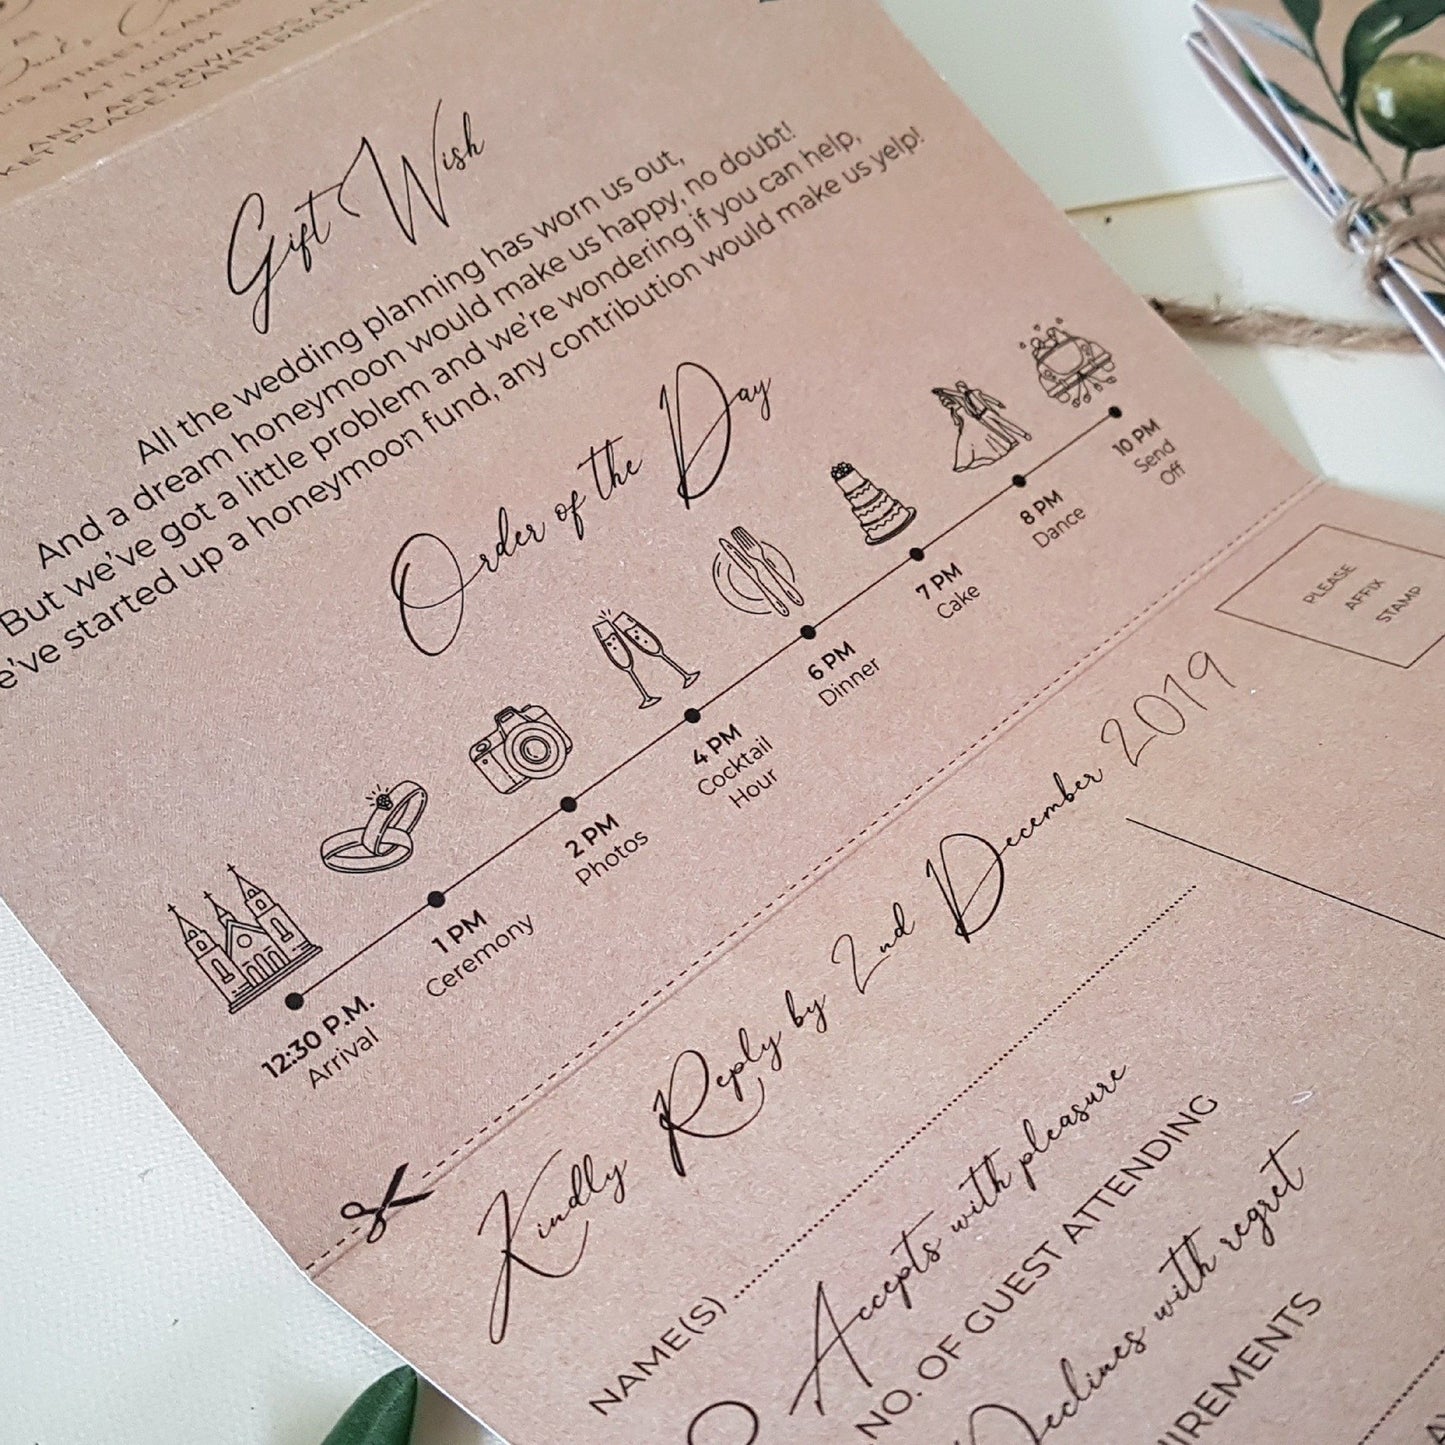 AT
STREET,
AT 1:00PM
AND AFTERWARDS AT
KET PLACE, CANTERBURY
Gift Wish
All the wedding planning has worn us out,
And a dream honeymoon would make us happy, no doubt!
But we've got a little problem and we're wondering if you can help,
e've started up a honeymoon fund, any contribution would make us yelp!
Order of the Day
12:30 P.M.
Arrival
1 PM
Ceremony
2 PM
Photos
4 PM
Cocktail
Hour
6 PM
Dinner
7 PM
Cake
8 PM
Dance
10 PM
Send
Off
PLEASE
AFFIX
STAMP
Kindly Reply by 2nd December 2019
NAME(S)
Accepts with pleasure
NO. OF GUEST ATTENDING
Declines with regret
IREMENTS